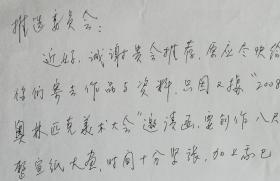 推选委员会：
近好，诚谢贵会推荐，原应尽快给
你们寄去作品与资料，只因又接“2008
奥林匹克美术大会”邀请函，要创作八尺
整宣纸大画，时间十分紧张，加上家已